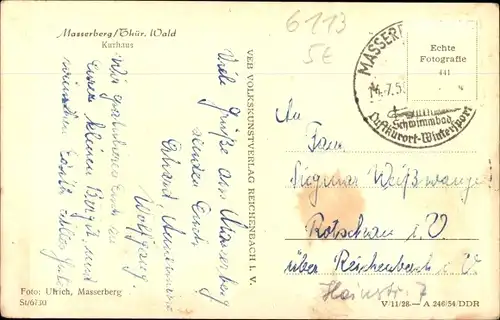 Masserberg/Thür. Wald
Kurhaus
Viele Grüße aus Masserberg
senden Euch
Erhard, Annemarie
Wolfgang.
Wir gratulieren Euch zu
Eurer kleinen Birgit und
wünschen Euch alles Gute
Foto: Ulrich, Masserberg
St/6730
VEB VOLKSKUNSTVERLAG REICHENBACH I. V.
6113
5€
MASSERB
14.7.5
Schwimmbad
Luftkurort-Wintersport
Echte
Fotografie
441
An
Fam.
Siegmar Weißwange
Rotschau i. V.
über Reichenbach i. V.
Hainstr. 7
V/11/28 — A 246/54/DDR